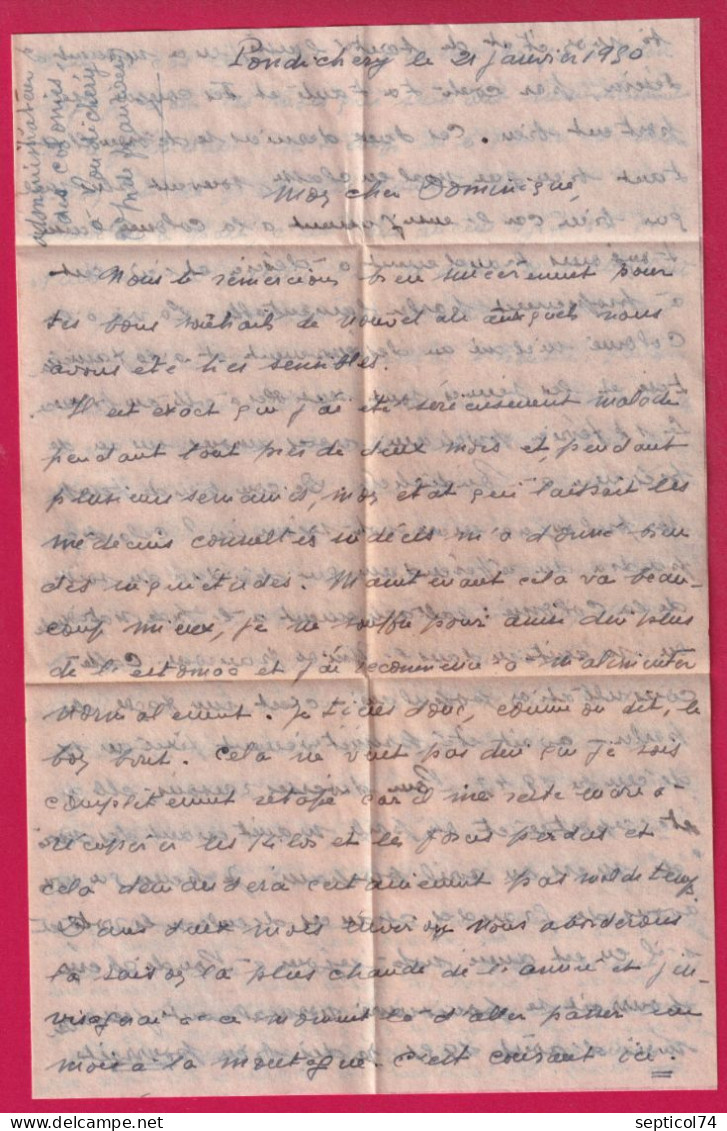 Pondichéry le 21 janvier 1950
Administrateur
des colonies
à Pondichéry
Mon cher Dominique,
Nous te remercions bien sincèrement pour
tes bons souhaits de nouvel an auxquels nous
avons été très sensibles.
Il est exact que j'ai été sérieusement malade
pendant tout près de deux mois et, pendant
plusieurs semaines, mon état qui laissait les
médecins consultés indécis m'a donné bien
des inquiétudes. Maintenant cela va beau-
coup mieux, je ne souffre pour ainsi dire plus
de l'estomac et j'ai recommencé à m'alimenter
normalement. Je tiens donc, comme on dit, le
bon bout. Cela ne veut pas dire que je sois
complètement retapé car il me reste encore à
récupérer les kilos et les forces perdus et
cela demandera certainement pas mal de temps
Dans deux mois environ nous aborderons
la saison la plus chaude de l'année et j'en-
visagerai à ce moment là d'aller passer un
mois à la montagne. C'est courant ici.
septicol74